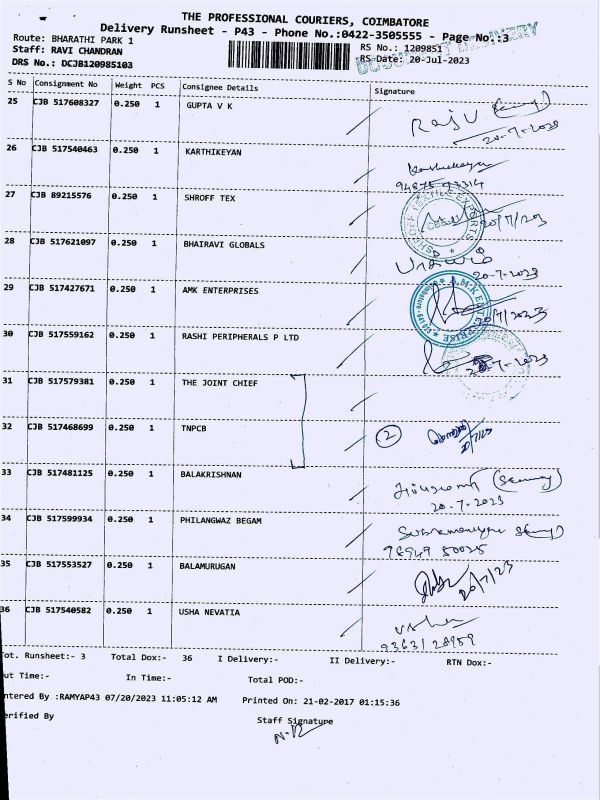 THE PROFESSIONAL COURIERS, COIMBATORE
Delivery Runsheet - P43 - Phone No.:0422-3505555 - Page No.:3
Route: BHARATHI PARK 1
RS No.: 1209851
Staff: RAVI CHANDRAN
RS Date: 20-Jul-2023
DRS No.: DCJB120985103
DOCUMENT DELIVERY
S No Consignment No Weight PCS Consignee Details Signature
25 CJB 517608327 0.250 1 GUPTA V K
Raju
20-7-2023
26 CJB 517540463 0.250 1 KARTHIKEYAN
27 CJB 89215576 0.250 1 SHROFF TEX
20/7/203
28 CJB 517621097 0.250 1 BHAIRAVI GLOBALS
20-7-2023
29 CJB 517427671 0.250 1 AMK ENTERPRISES
20/7/2023
30 CJB 517559162 0.250 1 RASHI PERIPHERALS P LTD
31 CJB 517579381 0.250 1 THE JOINT CHIEF
32 CJB 517468699 0.250 1 TNPCB
2
33 CJB 517481125 0.250 1 BALAKRISHNAN
20-7-2023
34 CJB 517599934 0.250 1 PHILANGWAZ BEGAM
98949 50025
35 CJB 517553527 0.250 1 BALAMURUGAN
20/7/23
36 CJB 517540582 0.250 1 USHA NEVATIA
Usha
Tot. Runsheet:- 3 Total Dox:- 36 I Delivery:- II Delivery:- RTN Dox:-
ut Time:- In Time:- Total POD:-
ntered By :RAMYAP43 07/20/2023 11:05:12 AM Printed On: 21-02-2017 01:15:36
erified By Staff Signature